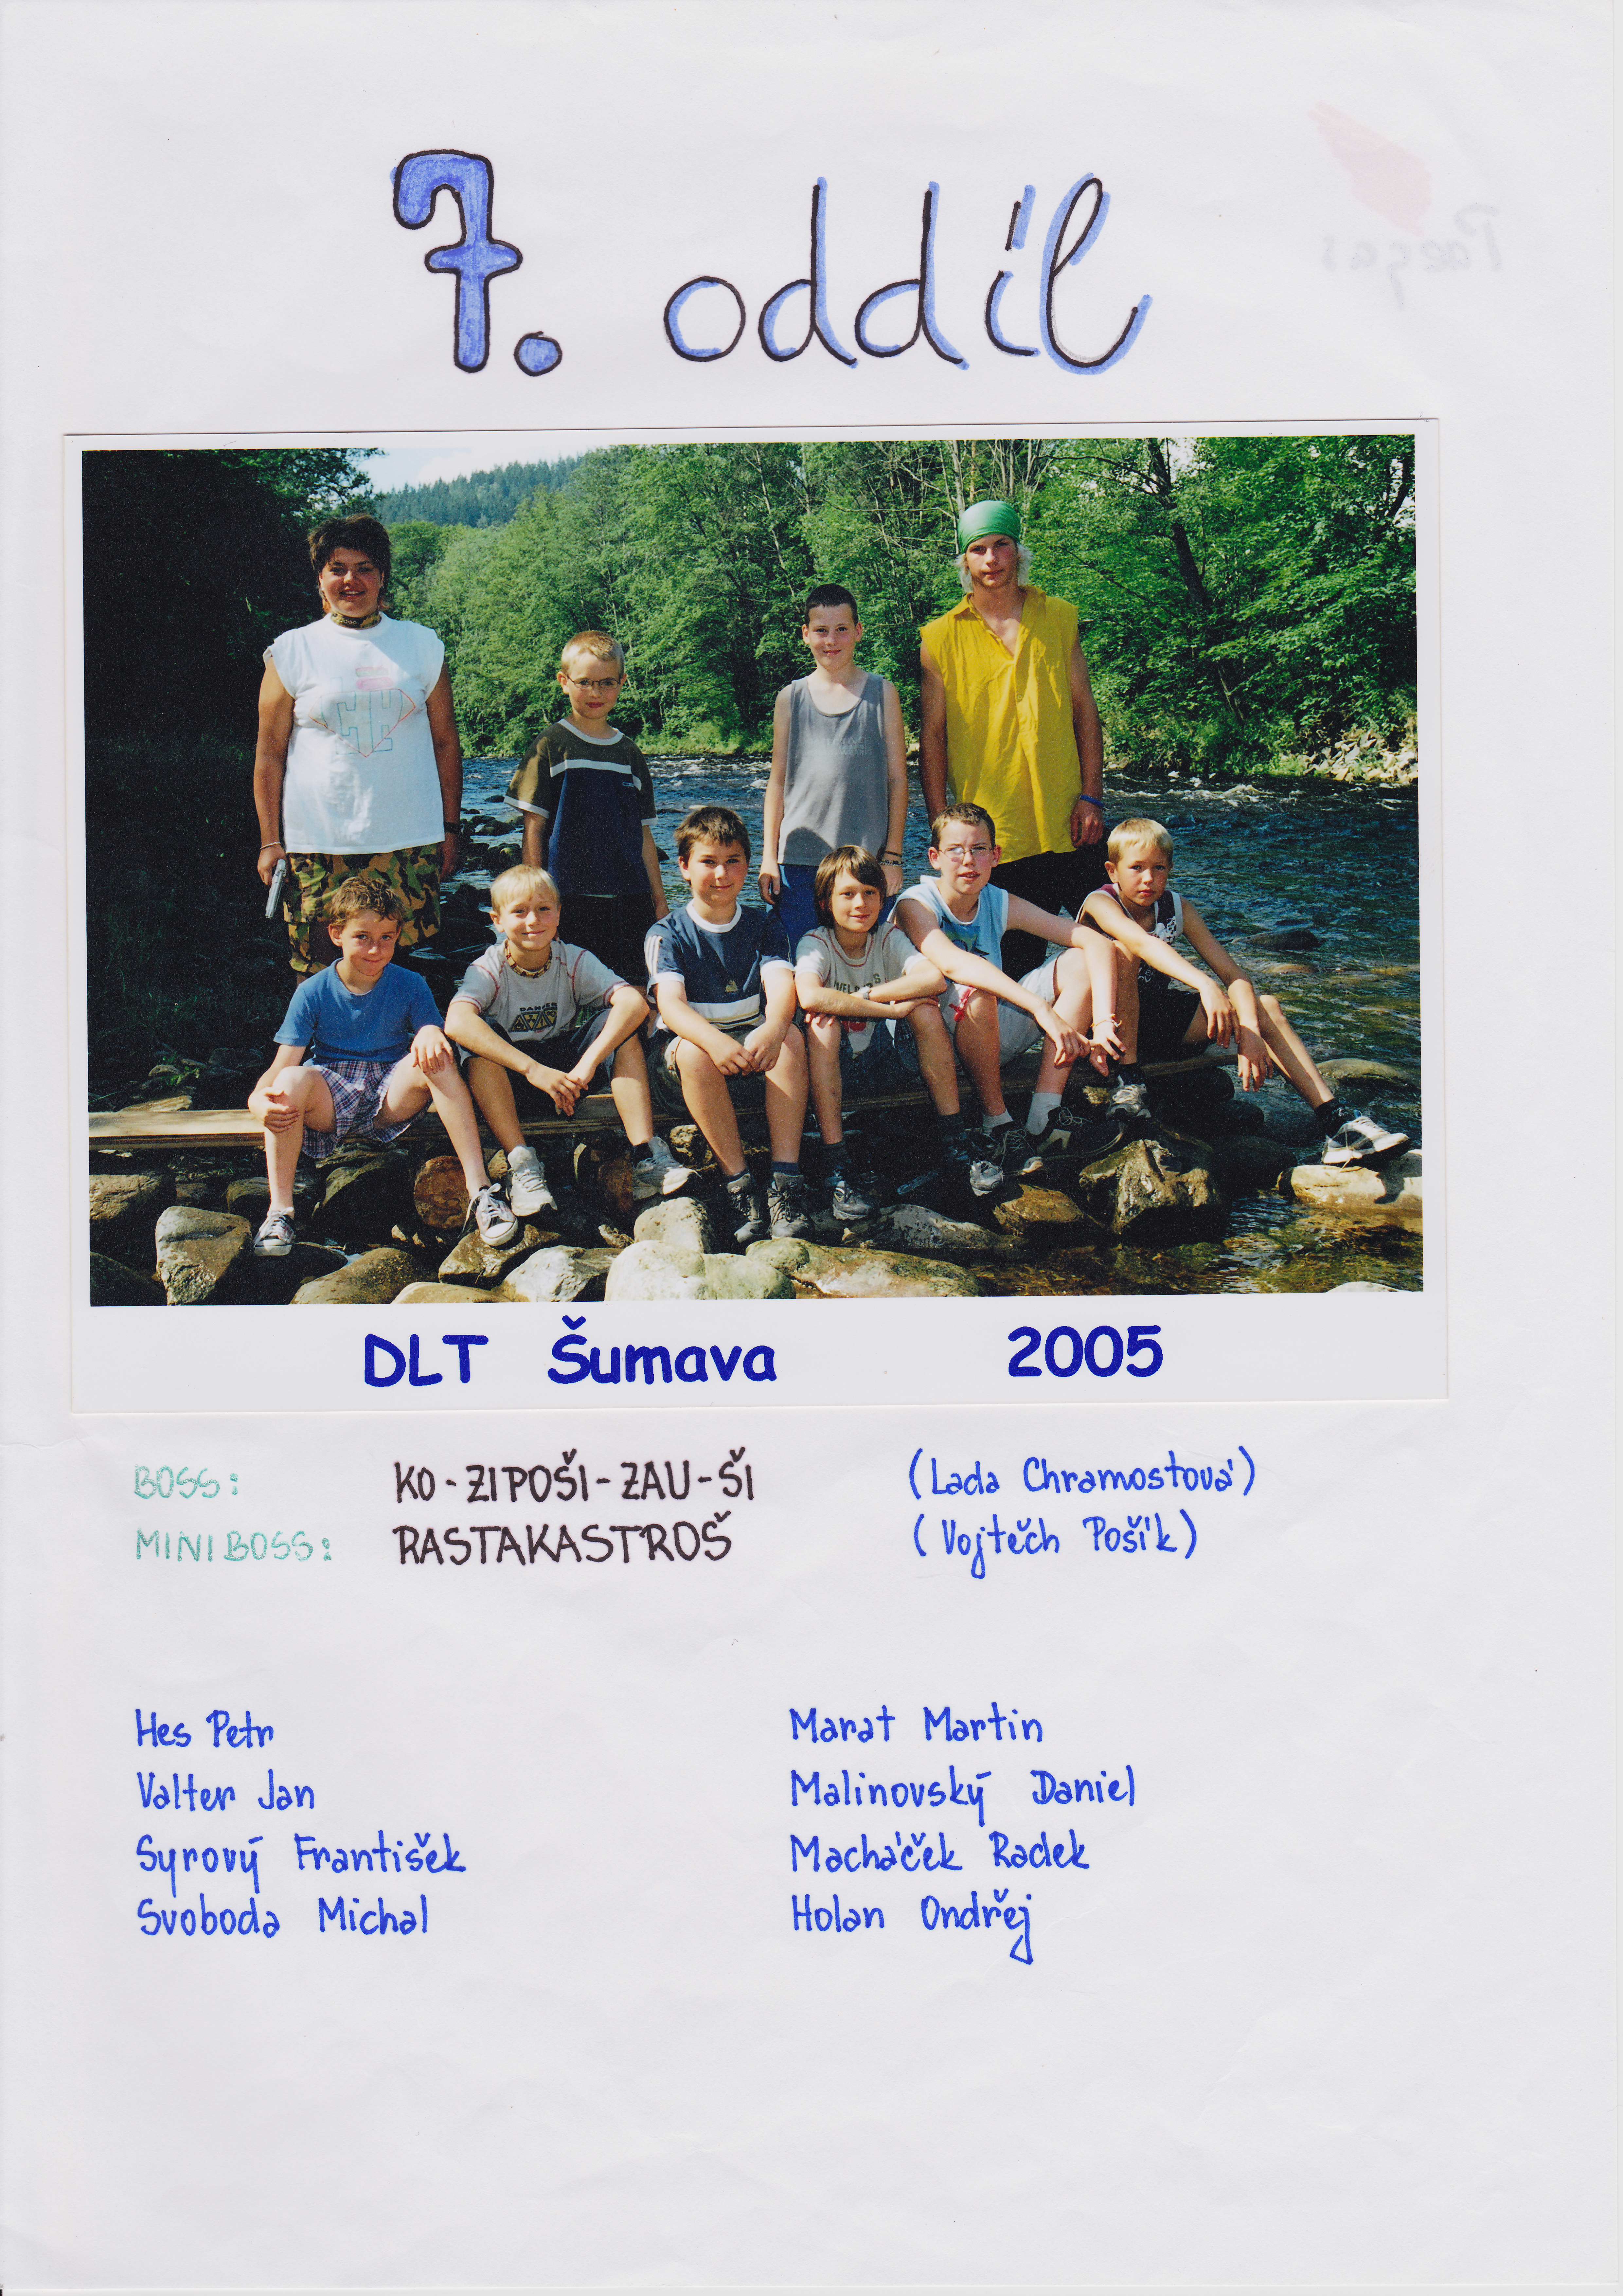 7. oddíl
DLT Šumava 2005
BOSS: KO-ZIPOŠI-ZAU-ŠI (Lada Chramostová)
MINIBOSS: RASTAKASTROŠ (Vojtěch Pošík)
Hes Petr
Valter Jan
Syrový František
Svoboda Michal
Marat Martin
Malinovský Daniel
Macháček Radek
Holan Ondřej